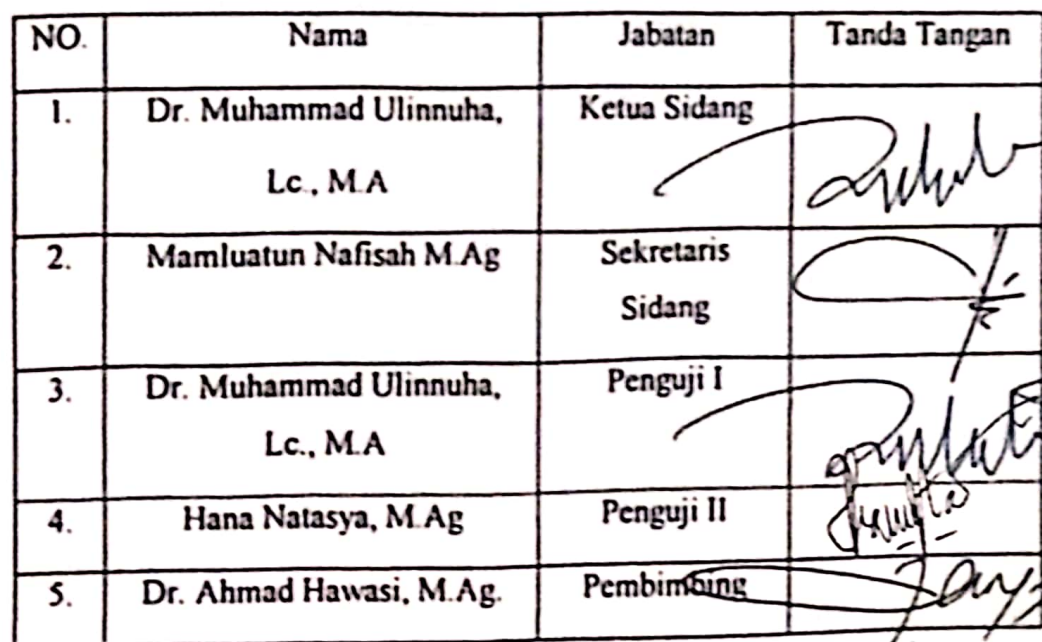 NO. Nama Jabatan Tanda Tangan
1. Dr. Muhammad Ulinnuha, Ketua Sidang
Lc., M.A
2. Mamluatun Nafisah M.Ag Sekretaris
Sidang
3. Dr. Muhammad Ulinnuha, Penguji I
Lc., M.A
4. Hana Natasya, M.Ag Penguji II
5. Dr. Ahmad Hawasi, M.Ag. Pembimbing